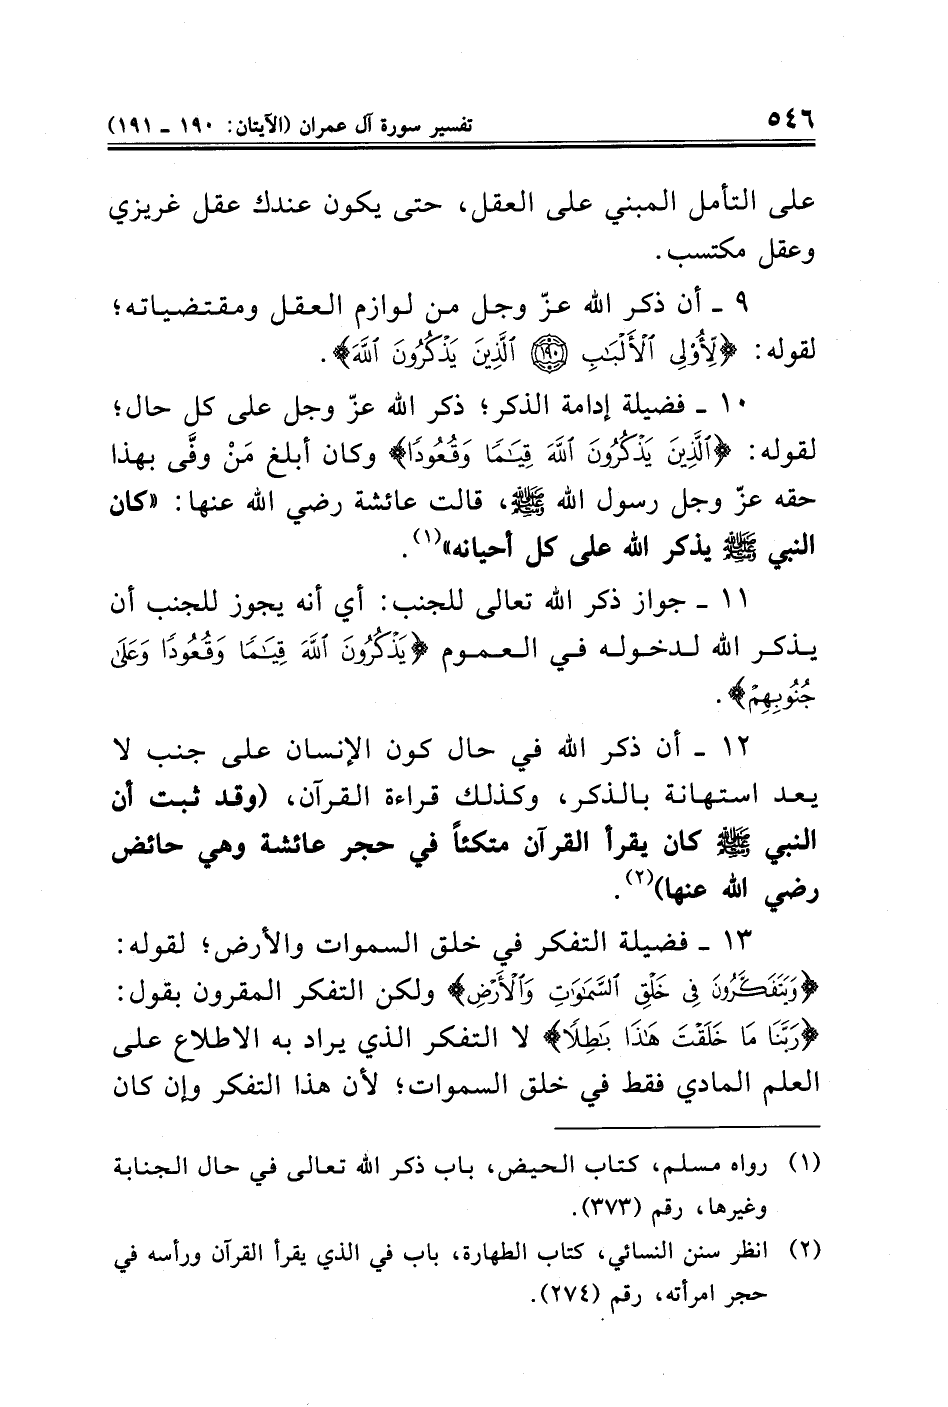 ٥٤٦
تفسير سورة آل عمران (الآيتان: ١٩٠ ـ ١٩١)
على التأمل المبني على العقل، حتى يكون عندك عقل غريزي
وعقل مكتسب.
٩ ـ أن ذكر الله عزّ وجل من لوازم العقل ومقتضياته؛
لقوله: ﴿لِّأُوْلِى ٱلْأَلْبَٰبِ ۝١٩٠ ٱلَّذِينَ يَذْكُرُونَ ٱللَّهَ﴾.
١٠ ـ فضيلة إدامة الذكر؛ ذكر الله عزّ وجل على كل حال؛
لقوله: ﴿ٱلَّذِينَ يَذْكُرُونَ ٱللَّهَ قِيَٰمًا وَقُعُودًا﴾ وكان أبلغ مَنْ وفَّى بهذا
حقه عزّ وجل رسول الله ﷺ، قالت عائشة رضي الله عنها: «كان
النبي ﷺ يذكر الله على كل أحيانه»(١).
١١ ـ جواز ذكر الله تعالى للجنب: أي أنه يجوز للجنب أن
يذكر الله لدخوله في العموم ﴿يَذْكُرُونَ ٱللَّهَ قِيَٰمًا وَقُعُودًا وَعَلَىٰ
جُنُوبِهِمْ﴾.
١٢ ـ أن ذكر الله في حال كون الإنسان على جنب لا
يعد استهانة بالذكر، وكذلك قراءة القرآن، (وقد ثبت أن
النبي ﷺ كان يقرأ القرآن متكئاً في حجر عائشة وهي حائض
رضي الله عنها)(٢).
١٣ ـ فضيلة التفكر في خلق السموات والأرض؛ لقوله:
﴿وَيَتَفَكَّرُونَ فِى خَلْقِ ٱلسَّمَٰوَٰتِ وَٱلْأَرْضِ﴾ ولكن التفكر المقرون بقول:
﴿رَبَّنَا مَا خَلَقْتَ هَٰذَا بَٰطِلًا﴾ لا التفكر الذي يراد به الاطلاع على
العلم المادي فقط في خلق السموات؛ لأن هذا التفكر وإن كان
(١) رواه مسلم، كتاب الحيض، باب ذكر الله تعالى في حال الجنابة
وغيرها، رقم (٣٧٣).
(٢) انظر سنن النسائي، كتاب الطهارة، باب في الذي يقرأ القرآن ورأسه في
حجر امرأته، رقم (٢٧٤).